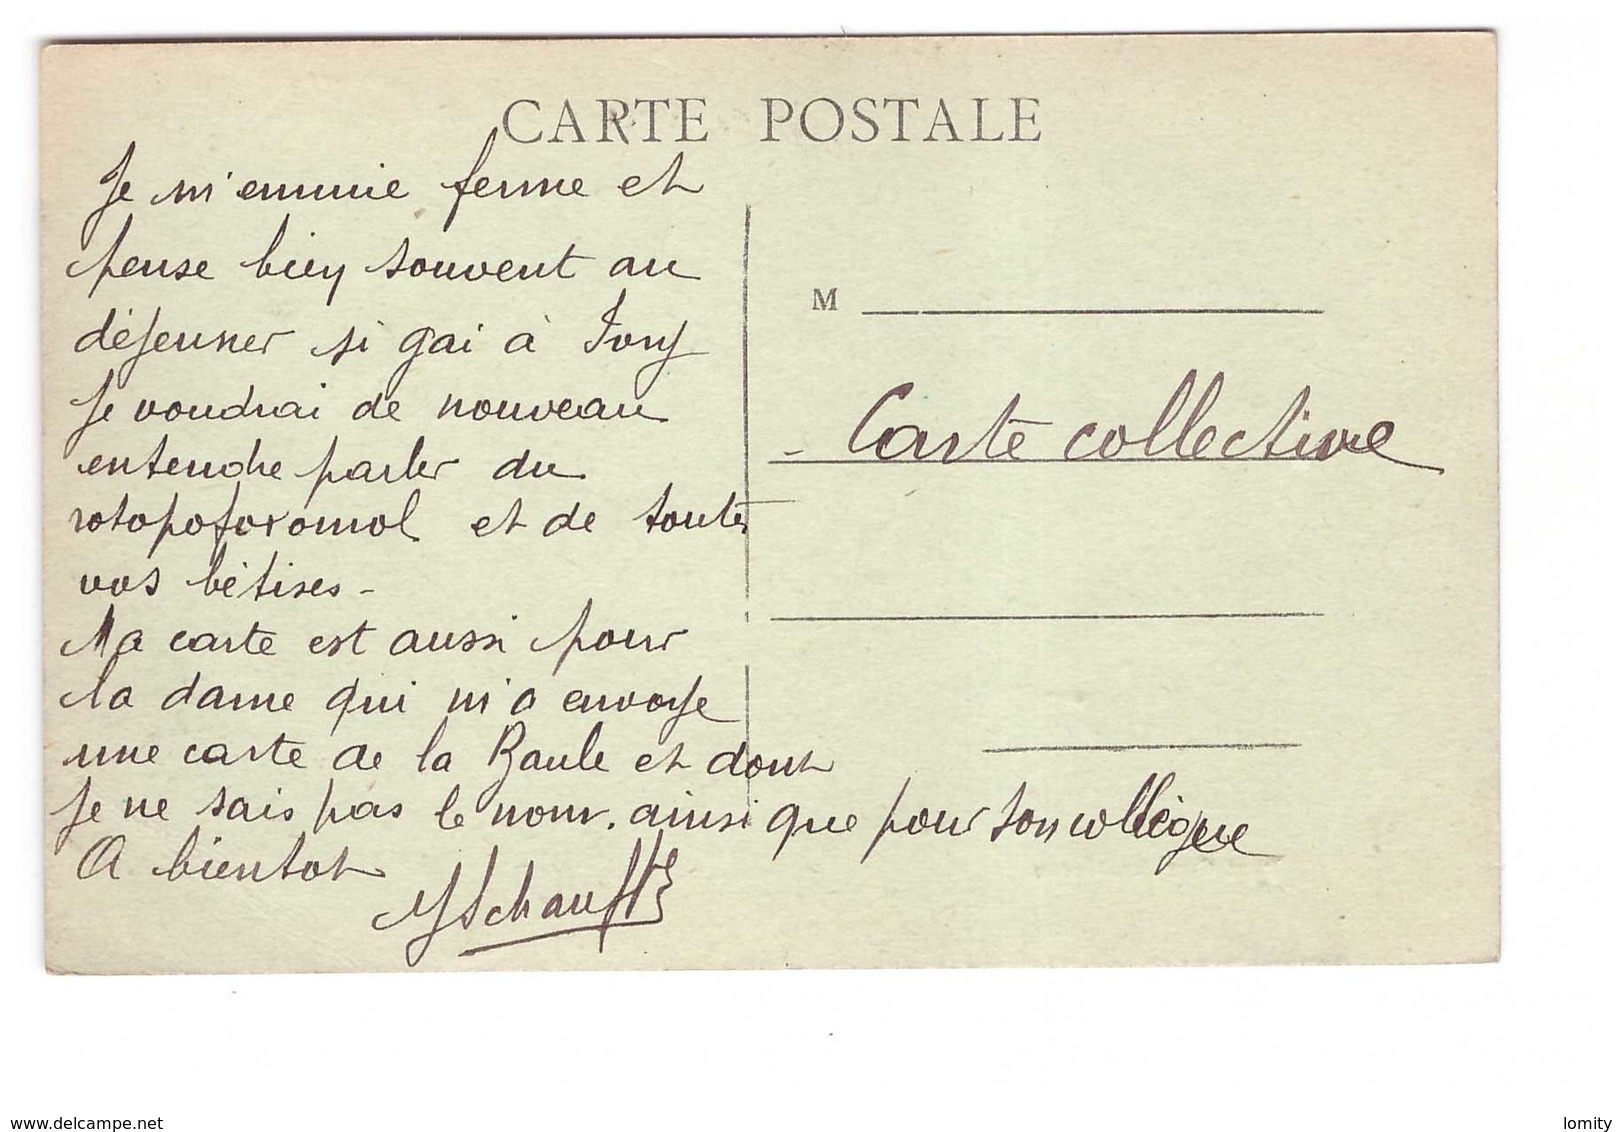 CARTE POSTALE
Je m'ennuie ferme et
pense bien souvent au
déjeuner si gai à Ivry
Je voudrai de nouveau
entendre parler du
rotopoforomol et de toutes
vos bêtises -
Ma carte est aussi pour
la dame qui m'a envoyé
une carte de la Baule et dont
je ne sais pas le nom. ainsi que pour son collègue
A bientot
M
- Carte collective
www.delcampe.net
lomity